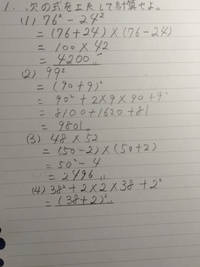 1. 次の式を工夫して計算せよ。
(1) 76² - 24²
= (76+24) × (76-24)
= 100 × 42
= 4200
(2) 99²
= (90+9)²
= 90² + 2×9×90 + 9²
= 8100 + 1620 + 81
= 9801
(3) 48 × 52
= (50-2) × (50+2)
= 50² - 4
= 2496
(4) 38² + 2×2×38 + 2²
= (38+2)²